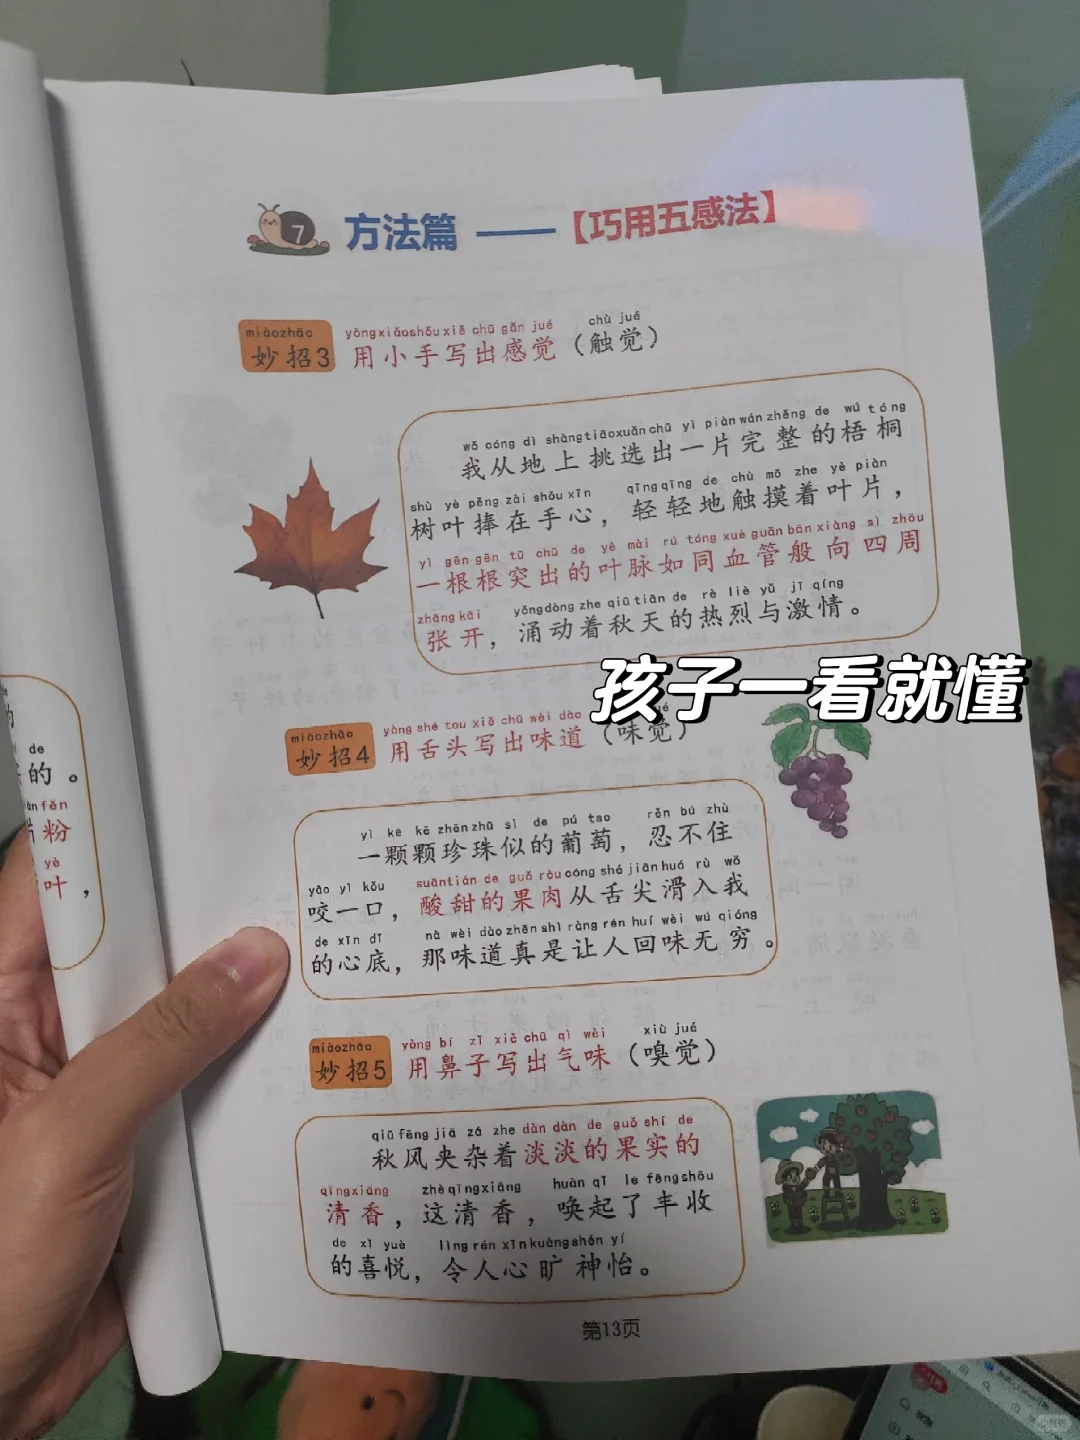 7 方法篇 ——【巧用五感法】
miàozhāo yòngxiǎoshǒuxiě chū gǎn jué chù jué
妙招3 用小手写出感觉（触觉）
wǒ cóng dì shàngtiāoxuǎnchū yì piànwánzhěng de wú tóng
我从地上挑选出一片完整的梧桐
shù yè pěng zài shǒu xīn qīngqīng de chù mō zhe yè piàn
树叶捧在手心，轻轻地触摸着叶片，
yì gēn gēn tū chū de yè mài rú tóng xuè guǎn bān xiàng sì zhōu
一根根突出的叶脉如同血管般向四周
zhāng kāi yǒngdòng zhe qiū tiān de rè liè yǔ jī qíng
张开，涌动着秋天的热烈与激情。
孩子一看就懂
miàozhāo yòng shé tou xiě chū wèi dào
妙招4 用舌头写出味道（味觉）
yì kē kē zhēnzhū sì de pú tao rěn bú zhù
一颗颗珍珠似的葡萄，忍不住
yǎo yì kǒu suāntián de guǒ ròu cóng shé jiānhuá rù wǒ
咬一口，酸甜的果肉从舌尖滑入我
de xīn dǐ nà wèi dào zhēn shì ràng rén huí wèi wú qióng
的心底，那味道真是让人回味无穷。
miàozhāo yòng bí zǐ xiě chū qì wèi xiù jué
妙招5 用鼻子写出气味（嗅觉）
qiū fēng jiā zá zhe dàn dàn de guǒ shí de
秋风夹杂着淡淡的果实的
qīngxiāng zhèqīngxiāng huàn qǐ le fēngshōu
清香，这清香，唤起了丰收
de xǐ yuè lìng rén xīnkuàngshén yí
的喜悦，令人心旷神怡。
第13页
de
的。
fěn
粉
yè
叶，